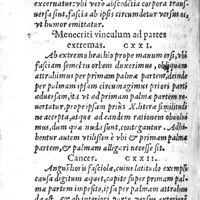 excernatur: ubi vero abscedita corpora trans
versa sint, fascia ab ipsis circumdetur versus os,
ut humor emittatur.
Menecriti vinculum ad partes
extremas. CXXI.
Ab extremo brachio prope manum orsi, ubi
fasciam semel in orbem duxerimus, obliquam
attrahimus per primam palmæ partem, deinde
per palmam ipsam circumagimus priori parti ad
versus, ita ut in palma partes eadem inter se
aptentur, prope ipsius X. literæ similitudi
nem accepta, atque ad eandem rationem obvolui
mus, dum quæ nuda sunt, contegantur. Adhi
bentur autem utilissime ubi & primam palmæ
partem, & palmam alligari necesse sit.
Cancer. CXXII.
Angustioris fasciolæ, cuius latitudo exempli
causa digitum æquet, capite per primam palmæ
partem imposito, ipsa per palmam